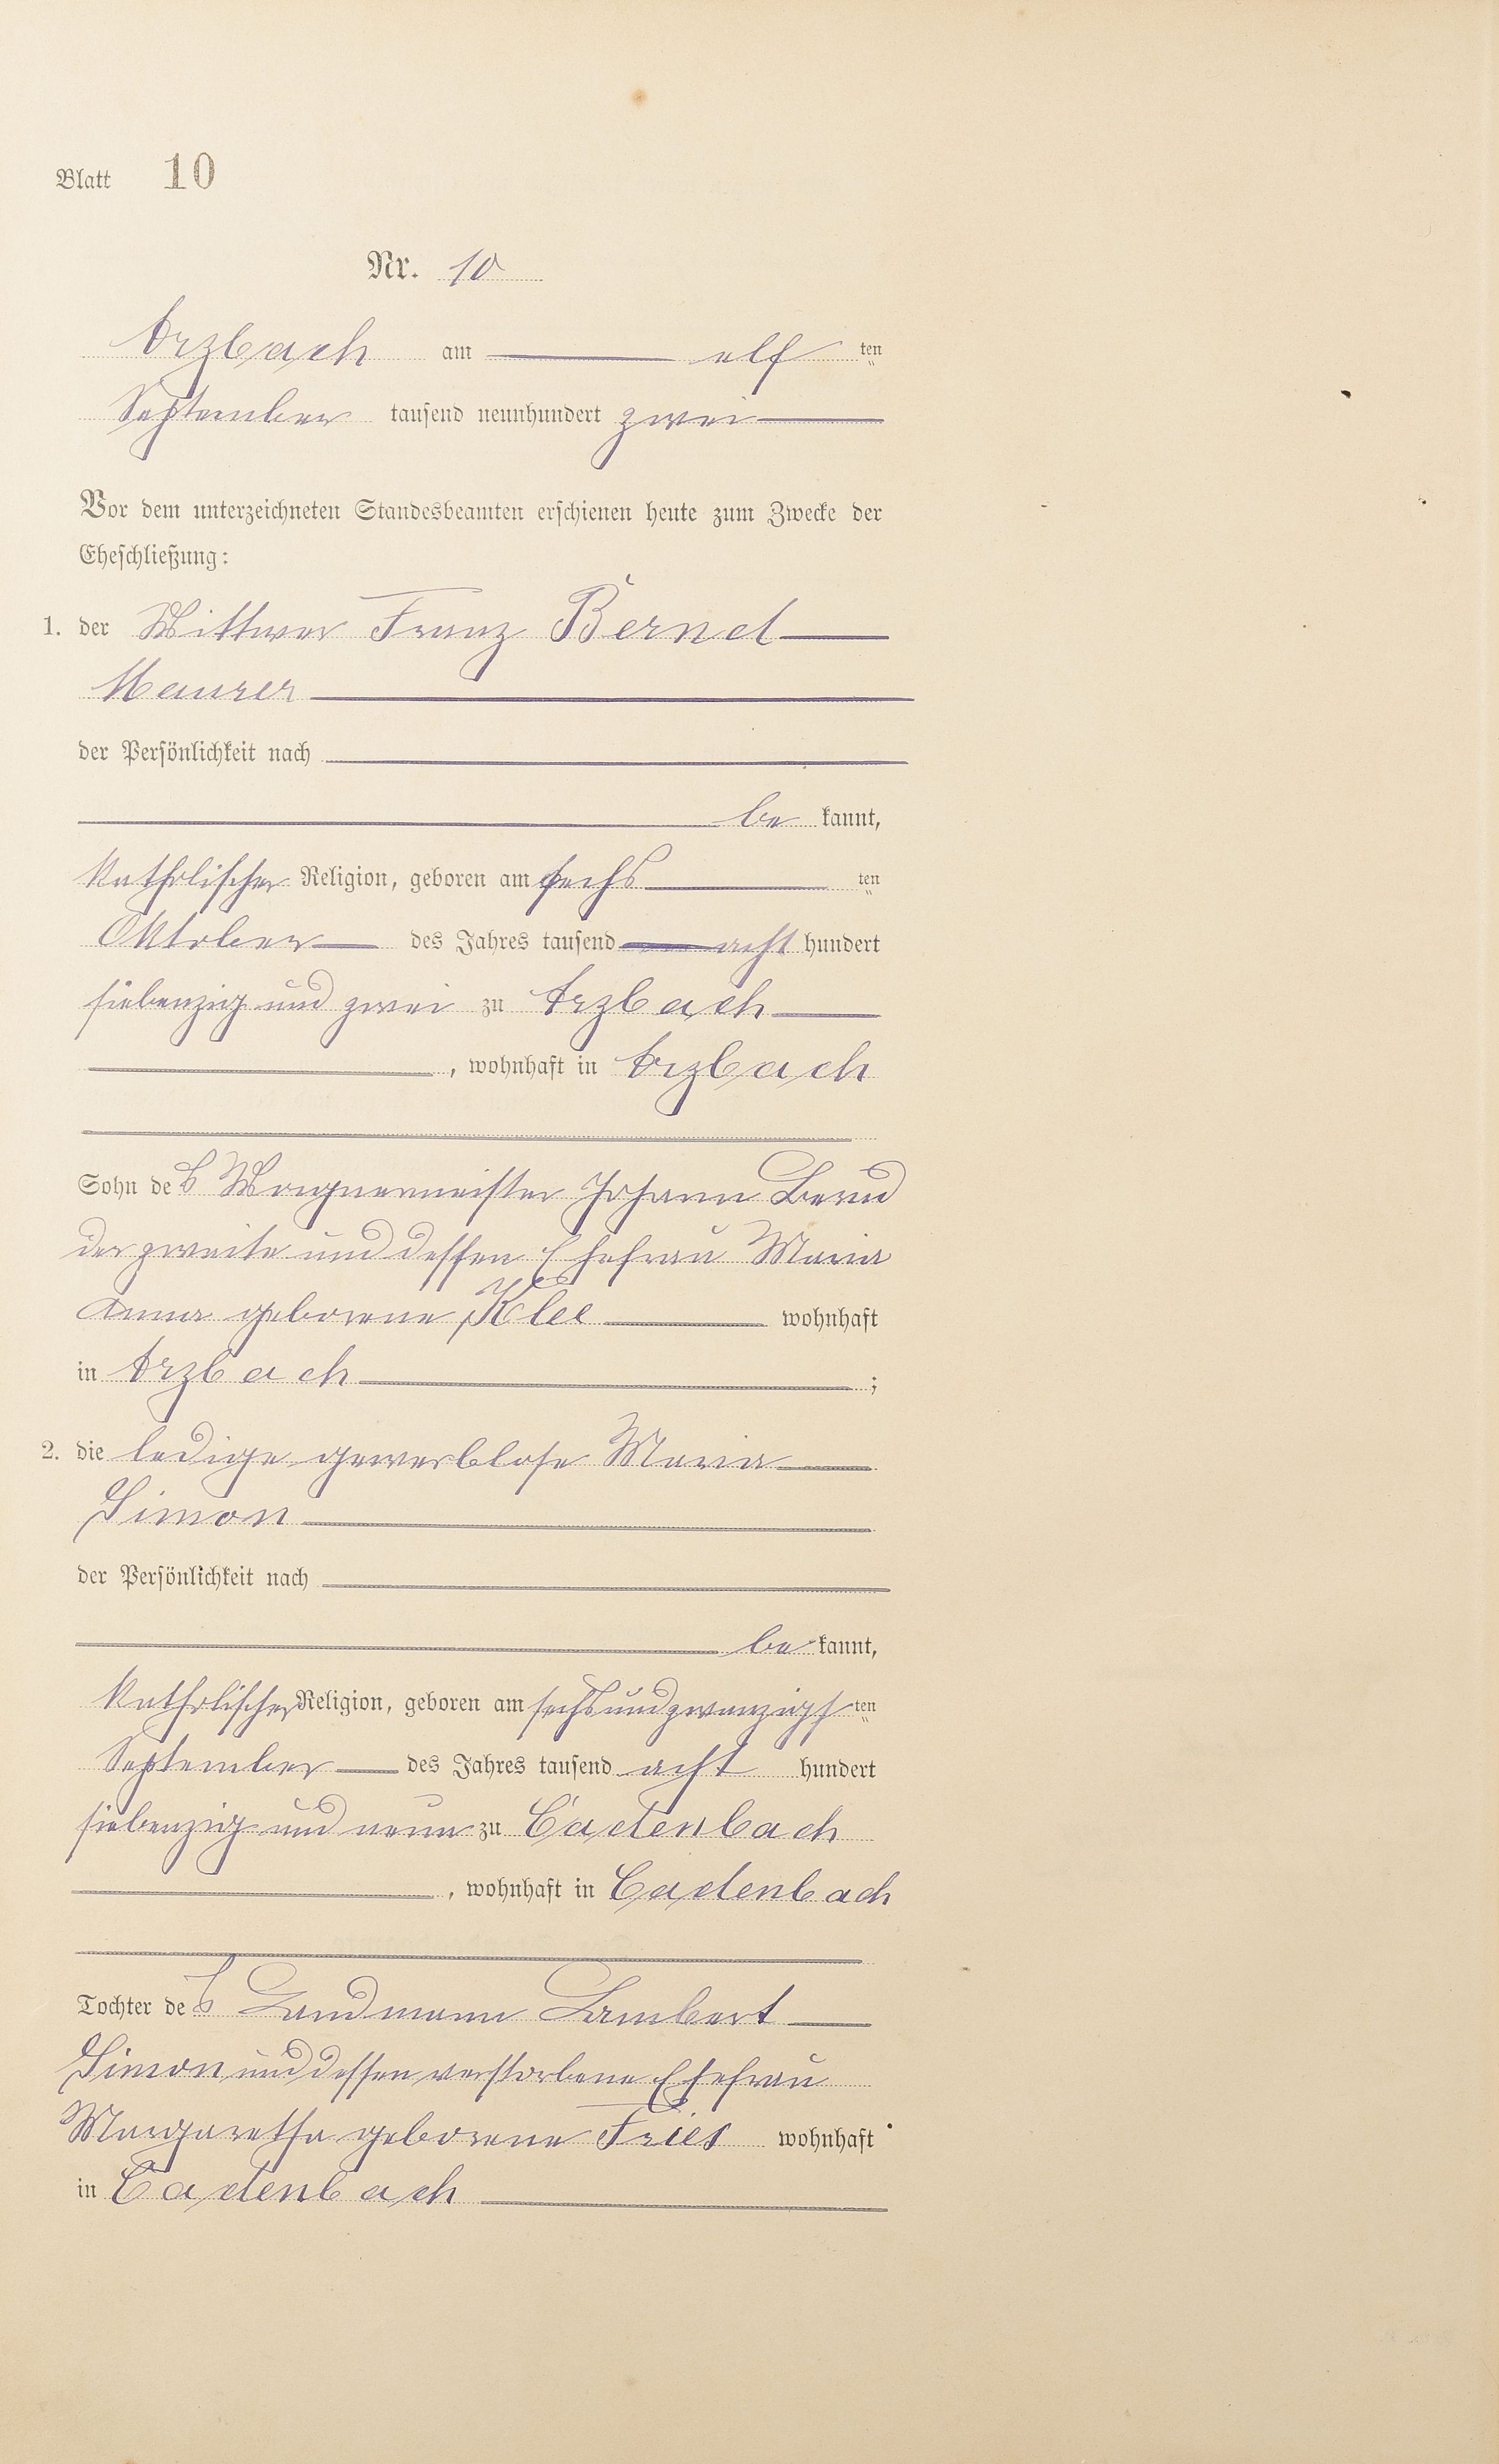 Blatt 10
Nr. 10
Arzbach am elf ten
September tausend neunhundert zwei
Vor dem unterzeichneten Standesbeamten erschienen heute zum Zwecke der
Eheschließung:
1. der Wittwer Franz Bernd
Maurer
der Persönlichkeit nach
be kannt,
katholischer Religion, geboren am sechs ten
Oktober des Jahres tausend acht hundert
siebenzig und zwei zu Arzbach
, wohnhaft in Arzbach
Sohn des Wagnermeister Johann Bernd
der zweite und dessen Ehefrau Maria
Anna geborene Klee wohnhaft
in Arzbach ;
2. die ledige gewerblose Maria
Simon
der Persönlichkeit nach
be kannt,
katholischer Religion, geboren am sechsundzwanzigsten
September des Jahres tausend acht hundert
siebenzig und neun zu Cadenbach
, wohnhaft in Cadenbach
Tochter des Landmann Lambert
Simon und dessen verstorbene Ehefrau
Margaretha geborene Fries wohnhaft
in Cadenbach